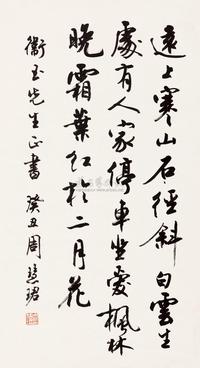 遠上寒山石徑斜白雲生
處有人家停車坐愛楓林
晚霜葉紅於二月花
衛玉先生正書 癸丑周慧珺